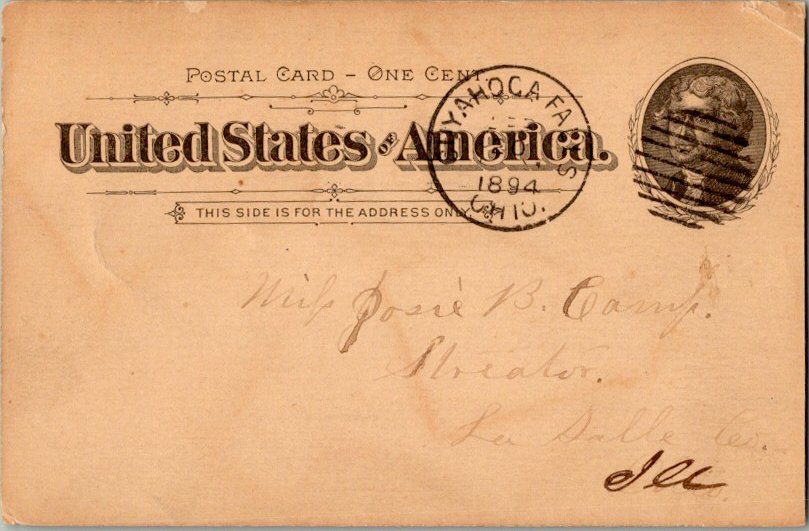 POSTAL CARD – ONE CENT.
United States of America.
THIS SIDE IS FOR THE ADDRESS ONLY.
CUYAHOGA FALLS
1894
OHIO.
Miss Josie B. Camp.
Streator.
La Salle Co.
Ill